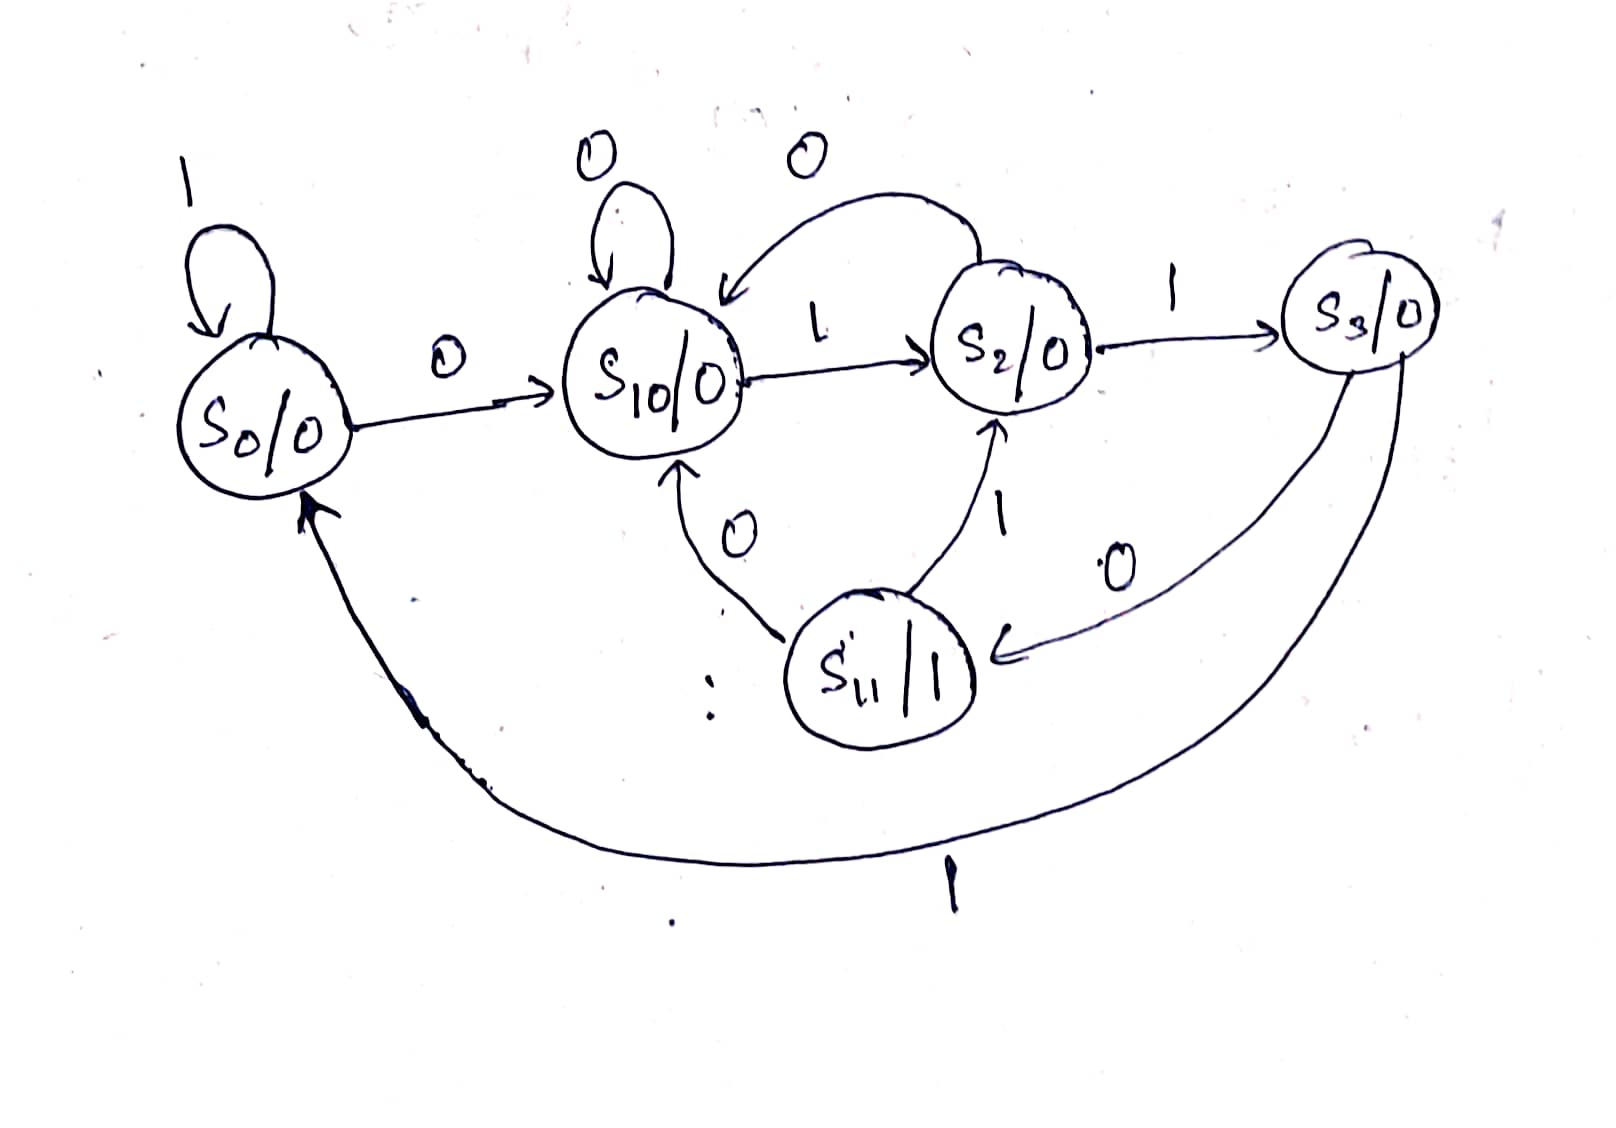 1
0
0
S0/0
0
S10/0
1
S2/0
1
S3/0
0
1
0
S11/1
1